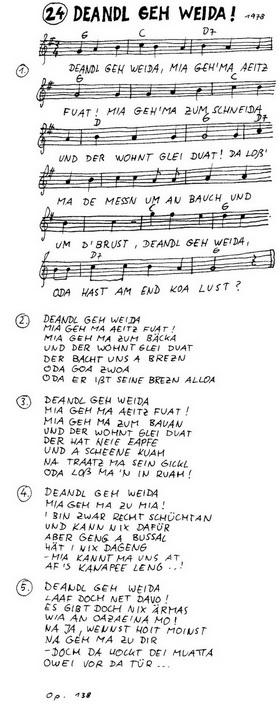 24 DEANDL GEH WEIDA! 1978
G C D7
1. DEANDL GEH WEIDA, MIA GEH'MA AEITZ
G C
FUAT! MIA GEH'MA ZUM SCHNEIDA
D G
UND DER WOHNT GLEI DUAT! DA LOß'
MA DE MESSN UM AN BAUCH UND
C G D7
UM D'BRUST, DEANDL GEH WEIDA,
D7 G
ODA HAST AM END KOA LUST?
2. DEANDL GEH WEIDA
MIA GEH MA AEITZ FUAT!
MIA GEH MA ZUM BÄCKA
UND DER WOHNT GLEI DUAT
DER BACHT UNS A BREZN
ODA GOA ZWOA
ODA ER IßT SEINE BREZN ALLOA
3. DEANDL GEH WEIDA
MIA GEH MA AEITZ FUAT!
MIA GEH MA ZUM BAUAN
UND DER WOHNT GLEI DUAT
DER HAT NEIE EAPFE
UND A SCHEENE KUAH
NA TRAATZ MA SEIN GICKL
ODA LOß MA'N IN RUAH!
4. DEANDL GEH WEIDA
MIA GEH MA ZU MIA!
I BIN ZWAR RECHT SCHÜCHTAN
UND KANN NIX DAFÜR
ABER GENG A BUSSAL
HÄT I NIX DAGENG
- MIA KANNT MA UNS AT
AF'S KANAPEE LENG..!
5. DEANDL GEH WEIDA
LAAF DOCH NET DAVO!
ES GIBT DOCH NIX ÄRMAS
WIA AN OAZAEINA MO!
NA JA, WENNST HOIT MOINST
NA GEH MA ZU DIR
- DOCH DA HOCKT DEI MUATTA
OWEI VOR DA TÜR...
Op. 138